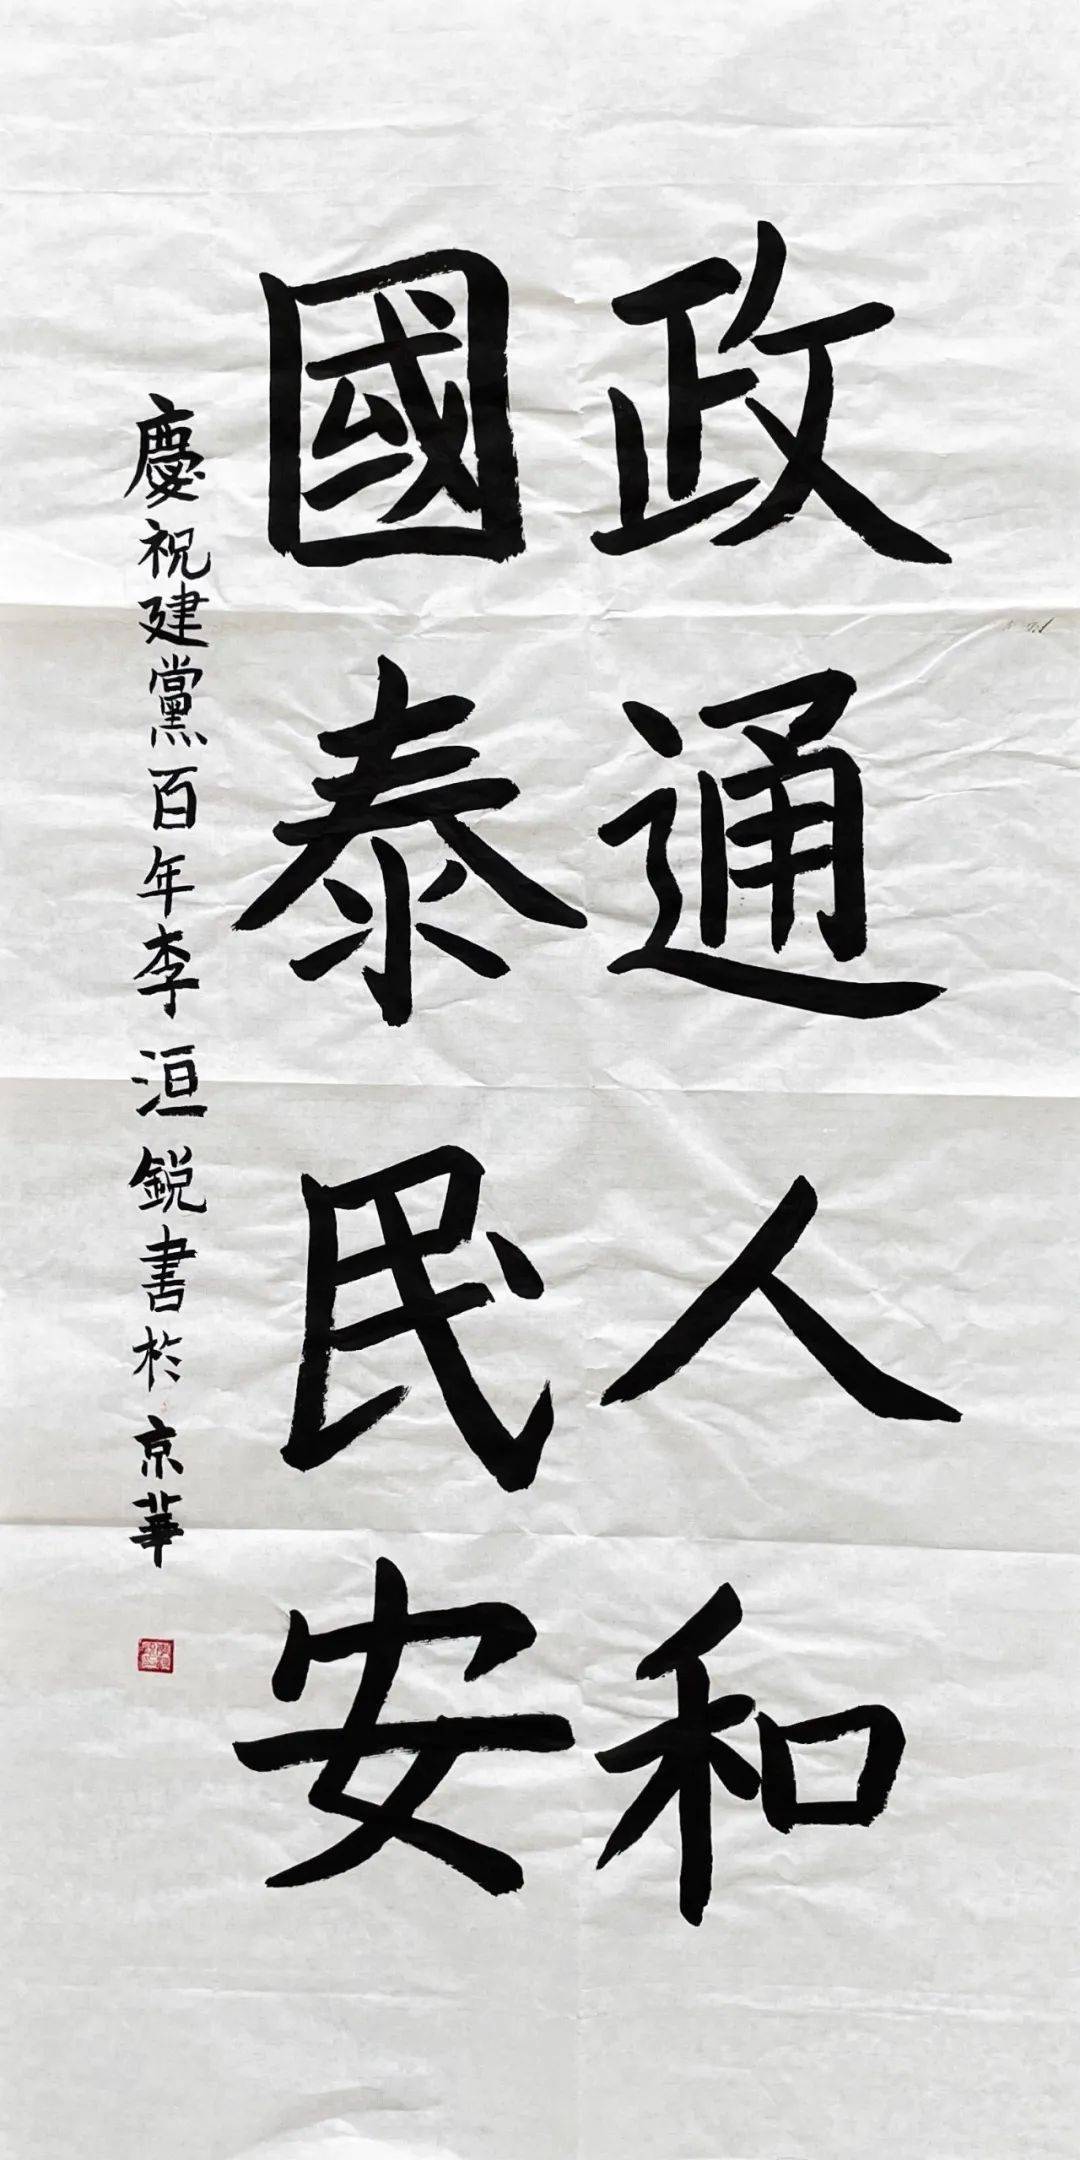 政通人和
國泰民安
慶祝建黨百年李洹銳書於京華